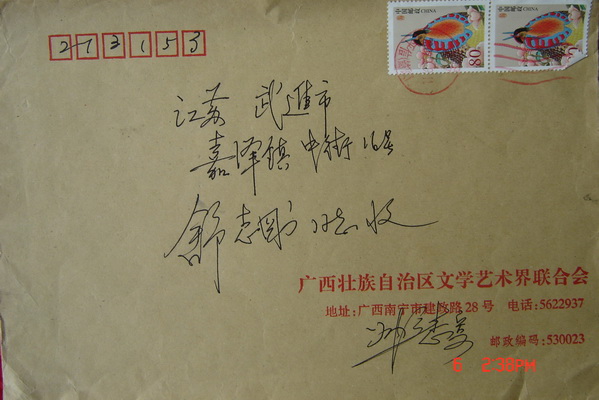 中国邮政 CHINA
80
中国邮政 CHINA
213153
江苏 武进市
嘉泽镇 中街16号
舒志刚 同志 收
广西壮族自治区文学艺术界联合会
地址:广西南宁市建政路28号 电话:5622937
邮政编码:530023
6 2:38PM